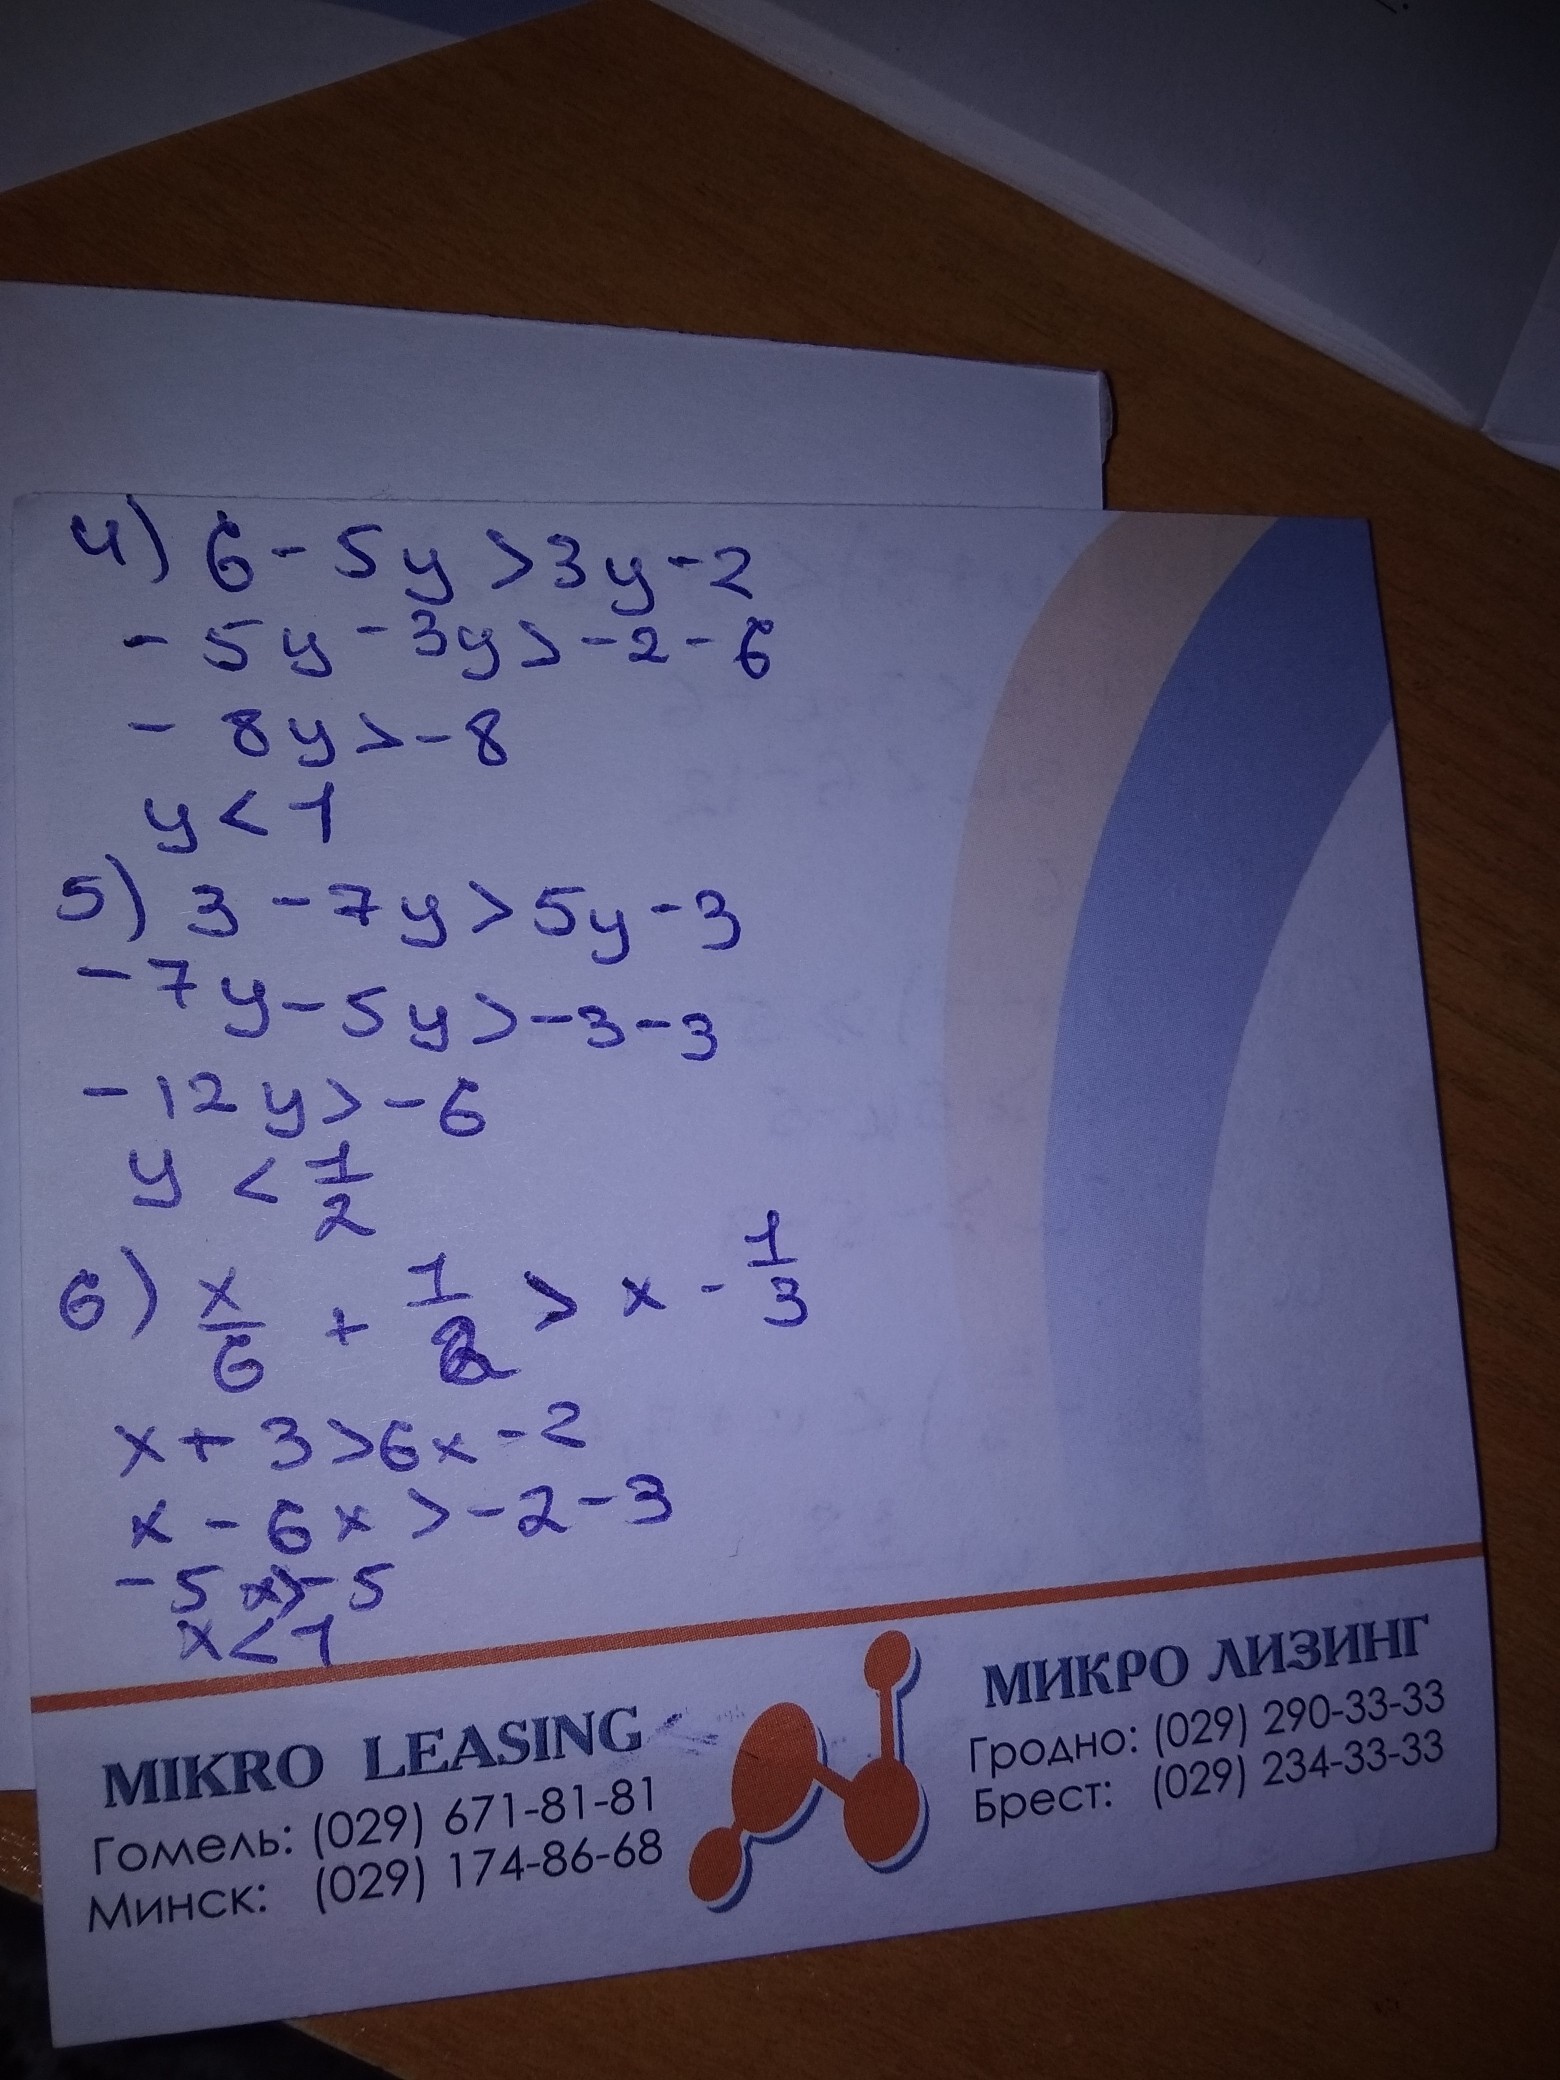 4) 6 - 5y > 3y - 2
- 5y - 3y > - 2 - 6
- 8y > - 8
y < 1
5) 3 - 7y > 5y - 3
- 7y - 5y > - 3 - 3
- 12y > - 6
y < 1/2
6) x/6 + 1/2 > x - 1/3
x + 3 > 6x - 2
x - 6x > - 2 - 3
- 5x > - 5
x < 1
MIKRO LEASING
Гомель: (029) 671-81-81
Минск: (029) 174-86-68
МИКРО ЛИЗИНГ
Гродно: (029) 290-33-33
Брест: (029) 234-33-33